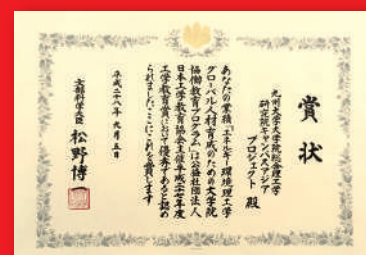 賞状
九州大学大学院総合理工学
研究院キャンパスアジア
プロジェクト 殿
あなたの業績「エネルギー環境理工学
グローバル人材育成のための大学院
協働教育プログラム」は公益社団法人
日本工学教育協会主催平成二十七年度
工学教育賞において優秀であると認め
られました ここにこれを賞します
平成二十八年九月五日
文部科学大臣 松野博一